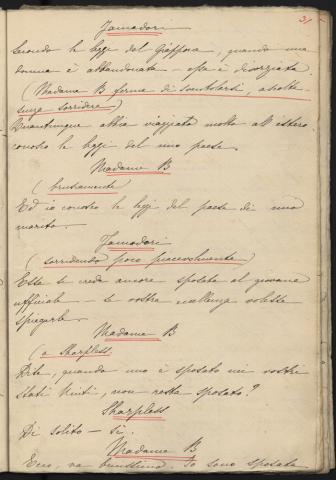 31
Yamadori
Secondo le leggi del Giappone, quando una
donna è abbandonata – essa è divorziata
(Madame B ferma di sventolarsi, ascolta
senza sorridere)
Quantunque abbia viaggiato molto all'estero
conosco le leggi del mio paese.
Madame B
(bruscamente)
Ed io conosco le leggi del paese di mio
marito.
Yamadori
(sorridendo poco piacevolmente)
Ella si crede ancora sposata al giovane
ufficiale – se vostra eccellenza volesse
spiegarle.
Madame B
(a Sharpless
Dite, quando uno è sposato nei vostri
Stati Uniti, non resta sposato?
Sharpless
Di solito – sì.
Madame B
Ecco, va benissimo. Io sono sposata